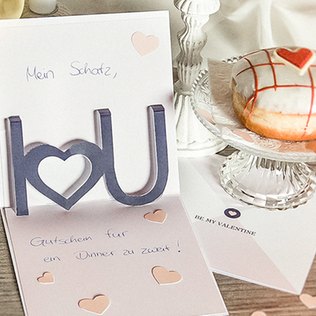 Mein Schatz,
I ♥ U
Gutschein für
ein Dinner zu zweit!
BE MY VALENTINE